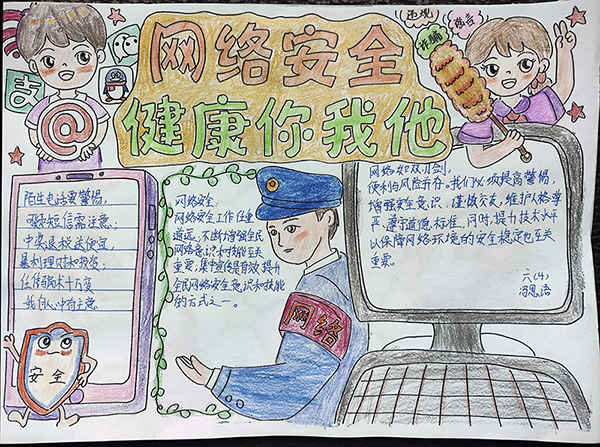 违规
谣言
诈骗
网络安全
健康你我他
@
陌生电话要警惕,
可疑短信需注意;
中奖退税送便宜,
暴利理财和投资;
任他骗术千万变
我自心中有主意
安全
网络安全:
网络安全工作任重
道远,不断增强全民
网络意识和技能至关
重要;集中宣传是有效提升
全民网络安全意识和技能
的方式之一。
网络
网络如双刃剑,
便利与风险并存。我们必须提高警惕,
增强安全意识,谨慎交友,维护人格尊
严,遵守道德标准,同时,提升技术水平
以保障网络环境的安全稳定也至关
重要。
六(4)